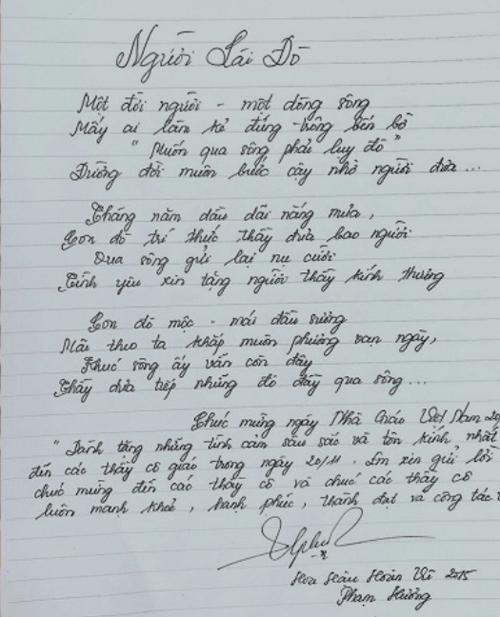 Người Lái Đò
Một đời người - một dòng sông
Mấy ai làm kẻ đứng trông bến bờ
"Muốn qua sông phải lụy đò"
Đường đời muôn bước cậy nhờ người đưa ...
Tháng năm dầu dãi nắng mưa,
Con đò trí thức thầy đưa bao người
Qua sông gửi lại nụ cười
Tình yêu xin tặng người thầy kính thương
Con đò mộc - mái đầu sương
Mãi theo ta khắp muôn phương vạn ngày,
Khúc sông ấy vẫn còn đây
Thầy đưa tiếp những đò đầy qua sông ...
Chúc mừng ngày Nhà Giáo Việt Nam 20
"Dành tặng những tình cảm sâu sắc và tôn kính nhất
đến các thầy cô giáo trong ngày 20/11. Em xin gửi lời
chúc mừng đến các thầy cô và chúc các thầy cô
luôn mạnh khoẻ, hạnh phúc, thành đạt và công tác
Hoa Hậu Hoàn Vũ 2015
Phạm Hương